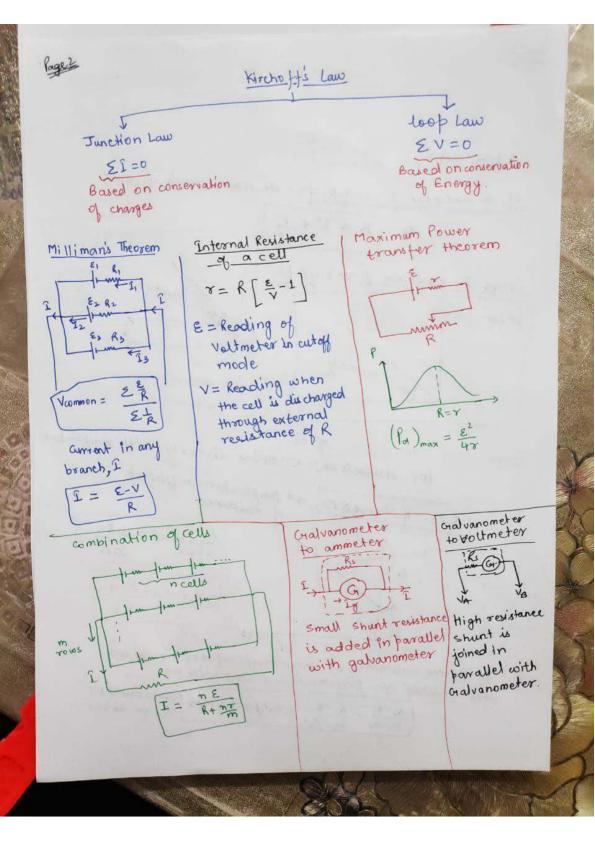 Page 2
Kirchoff's Law
Junction Law
ΣI=0
Based on conservation
of charges
loop Law
ΣV=0
Based on conservation
of Energy.
Milliman's Theorem
ε1 R1
I1
I I
ε2 R2
I2
ε3 R3
I3
Vcommon = Σ ε/R / Σ 1/R
Current in any
branch, I
I = ε-V / R
Internal Resistance
of a cell
r = R [ε/V - 1]
ε = Reading of
Voltmeter in cutoff
mode
V = Reading when
the cell is discharged
through external
resistance of R
Maximum Power
transfer theorem
ε r
R
P
R=r
max = ε²/4r
Combination of cells
n cells
m
rows
I
R
I = nε / R + nr/m
Galvanometer
to ammeter
Rs
I G I
Ig
Small shunt resistance
is added in parallel
with galvanometer
Galvanometer
to Voltmeter
Rs G
VA VB
High resistance
shunt is
joined in
parallel with
Galvanometer.